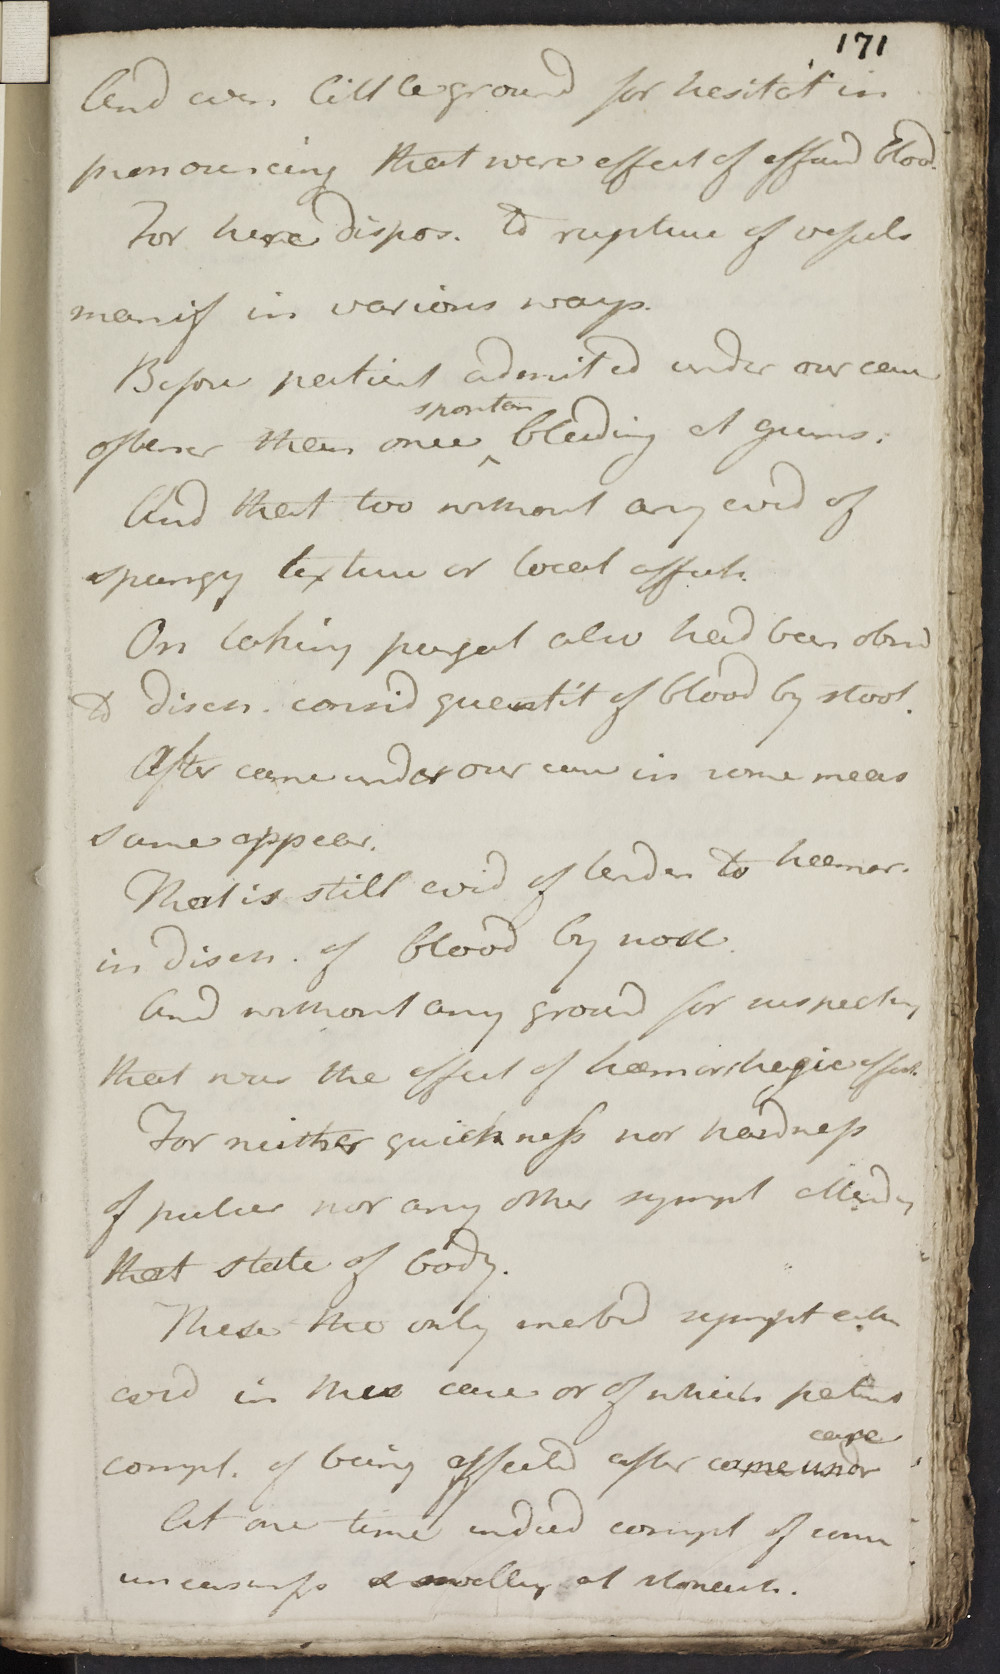 171
And even little ground for hesitat in
pronouncing that were effect of effusd blood.
For here dispos. to rupture of vessels
manif in various ways.
Before patient admited under our care
oftener than once ^ spontan bleeding at gums.
And that too without any evid of
spungy texture or local affect.
On taking purgat also had been obsd
to disch. consid quantit of blood by stool.
After came under our care in some meas
same appear.
That is still evid of tenden to haemor.
in disch. of blood by nose.
And without any ground for suspecting
that was the effect of haemorrhagic effort.
For neither quickness nor hardness
of pulse nor any other sympt attending
that state of body.
These the only morbid sympt either
in this case or of which patient
compl. of being affected after came under care
At one time indeed compl of some
uneasiness & swelling at stomach.